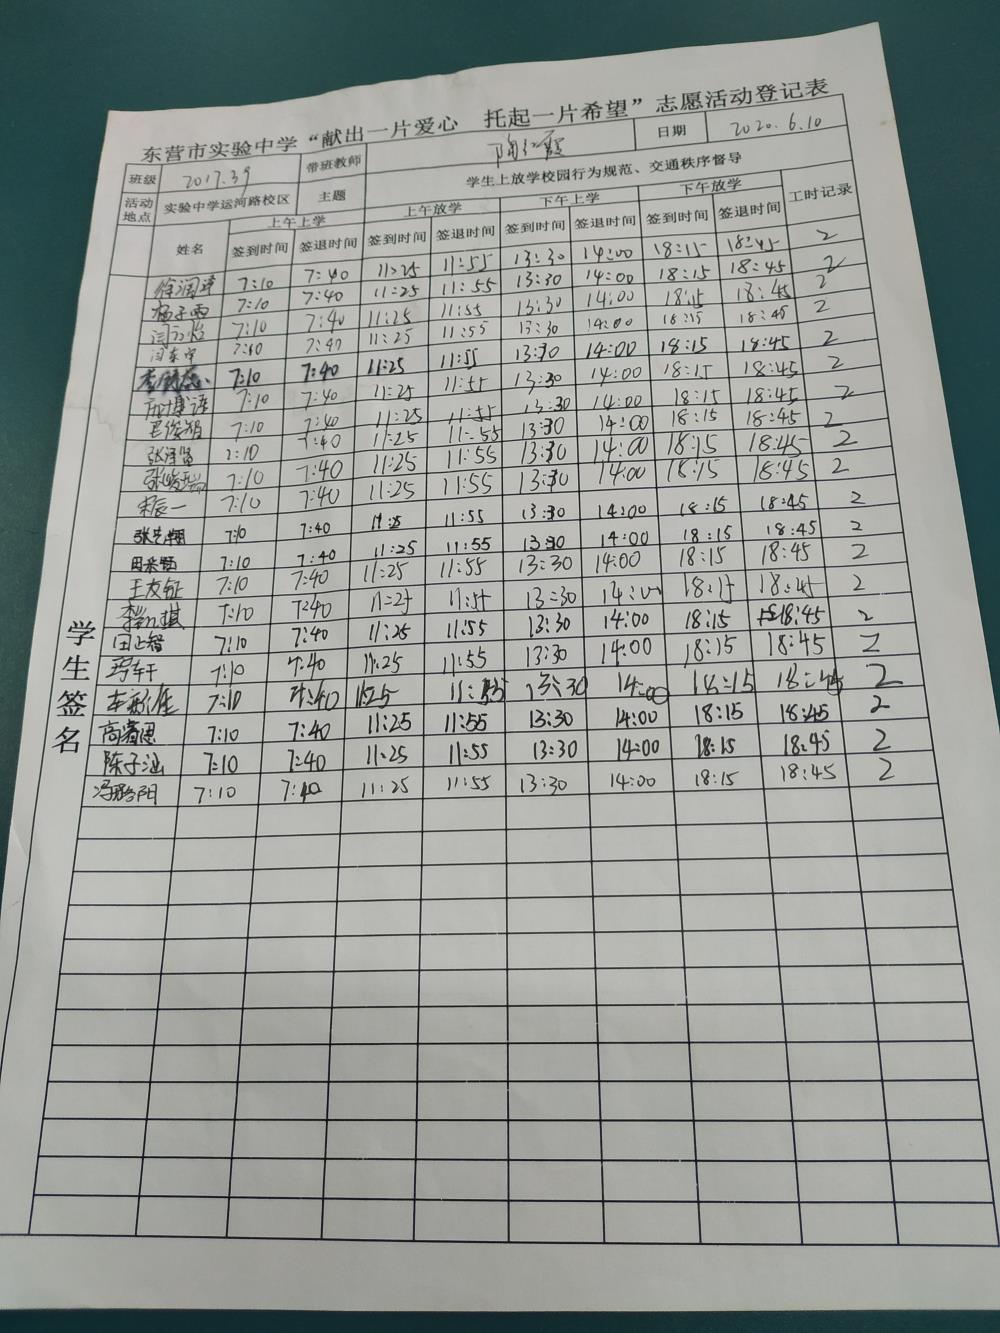 东营市实验中学“献出一片爱心 托起一片希望”志愿活动登记表
班级 2017.39 带班教师 日期 2020.6.10
活动地点 实验中学运河路校区 主题 学生上放学校园行为规范、交通秩序督导
上午上学 上午放学 下午上学 下午放学 工时记录
姓名 签到时间 签退时间 签到时间 签退时间 签到时间 签退时间 签到时间 签退时间
学生签名
徐润泽 7:10 7:40 11:25 11:55 13:30 14:00 18:15 18:45 2
杨子雨 7:10 7:40 11:25 11:55 13:30 14:00 18:15 18:45 2
7:10 7:40 11:25 11:55 13:30 14:00 18:15 18:45 2
7:10 7:40 11:25 11:55 13:30 14:00 18:15 18:45 2
7:10 7:40 11:25 11:55 13:30 14:00 18:15 18:45 2
7:10 7:40 11:25 11:55 13:30 14:00 18:15 18:45 2
7:10 7:40 11:25 11:55 13:30 14:00 18:15 18:45 2
7:10 7:40 11:25 11:55 13:30 14:00 18:15 18:45 2
7:10 7:40 11:25 11:55 13:30 14:00 18:15 18:45 2
宋辰一 7:10 7:40 11:25 11:55 13:30 14:00 18:15 18:45 2
张艺翔 7:10 7:40 11:25 11:55 13:30 14:00 18:15 18:45 2
7:10 7:40 11:25 11:55 13:30 14:00 18:15 18:45 2
王友钲 7:10 7:40 11:25 11:55 13:30 14:00 18:15 18:45 2
7:10 7:40 11:25 11:55 13:30 14:00 18:15 18:45 2
田正智 7:10 7:40 11:25 11:55 13:30 14:00 18:15 18:45 2
7:10 7:40 11:25 11:55 13:30 14:00 18:15 18:45 2
7:10 7:40 11:25 11:55 13:30 14:00 18:15 18:45 2
高着恩 7:10 7:40 11:25 11:55 13:30 14:00 18:15 18:45 2
陈子涵 7:10 7:40 11:25 11:55 13:30 14:00 18:15 18:45 2
7:10 7:40 11:25 11:55 13:30 14:00 18:15 18:45 2